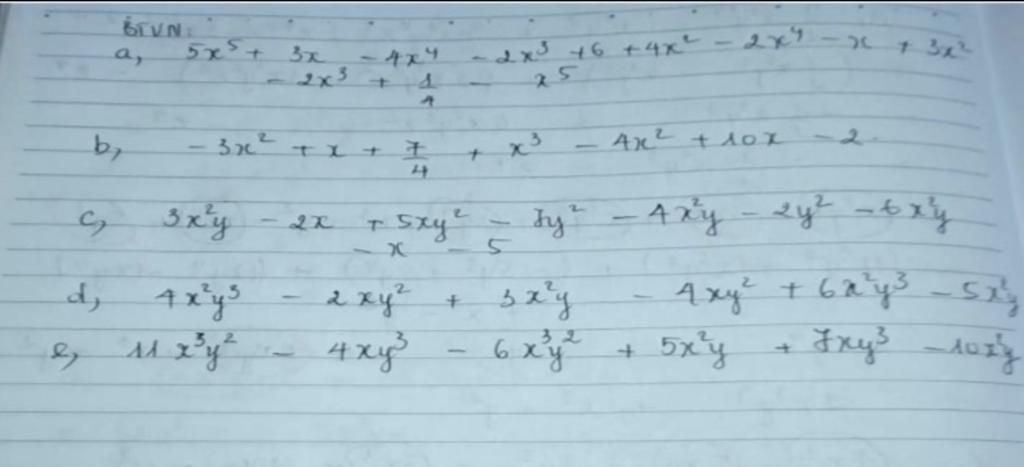 BTVN:
a, 5x⁵ + 3x - 4x⁴ - 2x³ + 6 + 4x² - 2x⁴ - x + 3x²
- 2x³ + 1/4 - x⁵
b, - 3x² + x + 7/4 + x³ - 4x² + 10x - 2.
c, 3x²y - 2x + 5xy² - 7y² - 4x²y - 2y² - 6x²y
- x - 5
d, 4x²y³ - 2xy² + 3x²y - 4xy² + 6x²y³ - 5x²y
e, 11x³y² - 4xy³ - 6x³y² + 5x²y + 7xy³ - 10x²y